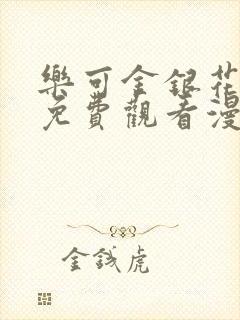 樂可金銀花
免費觀看漫
金錢虎